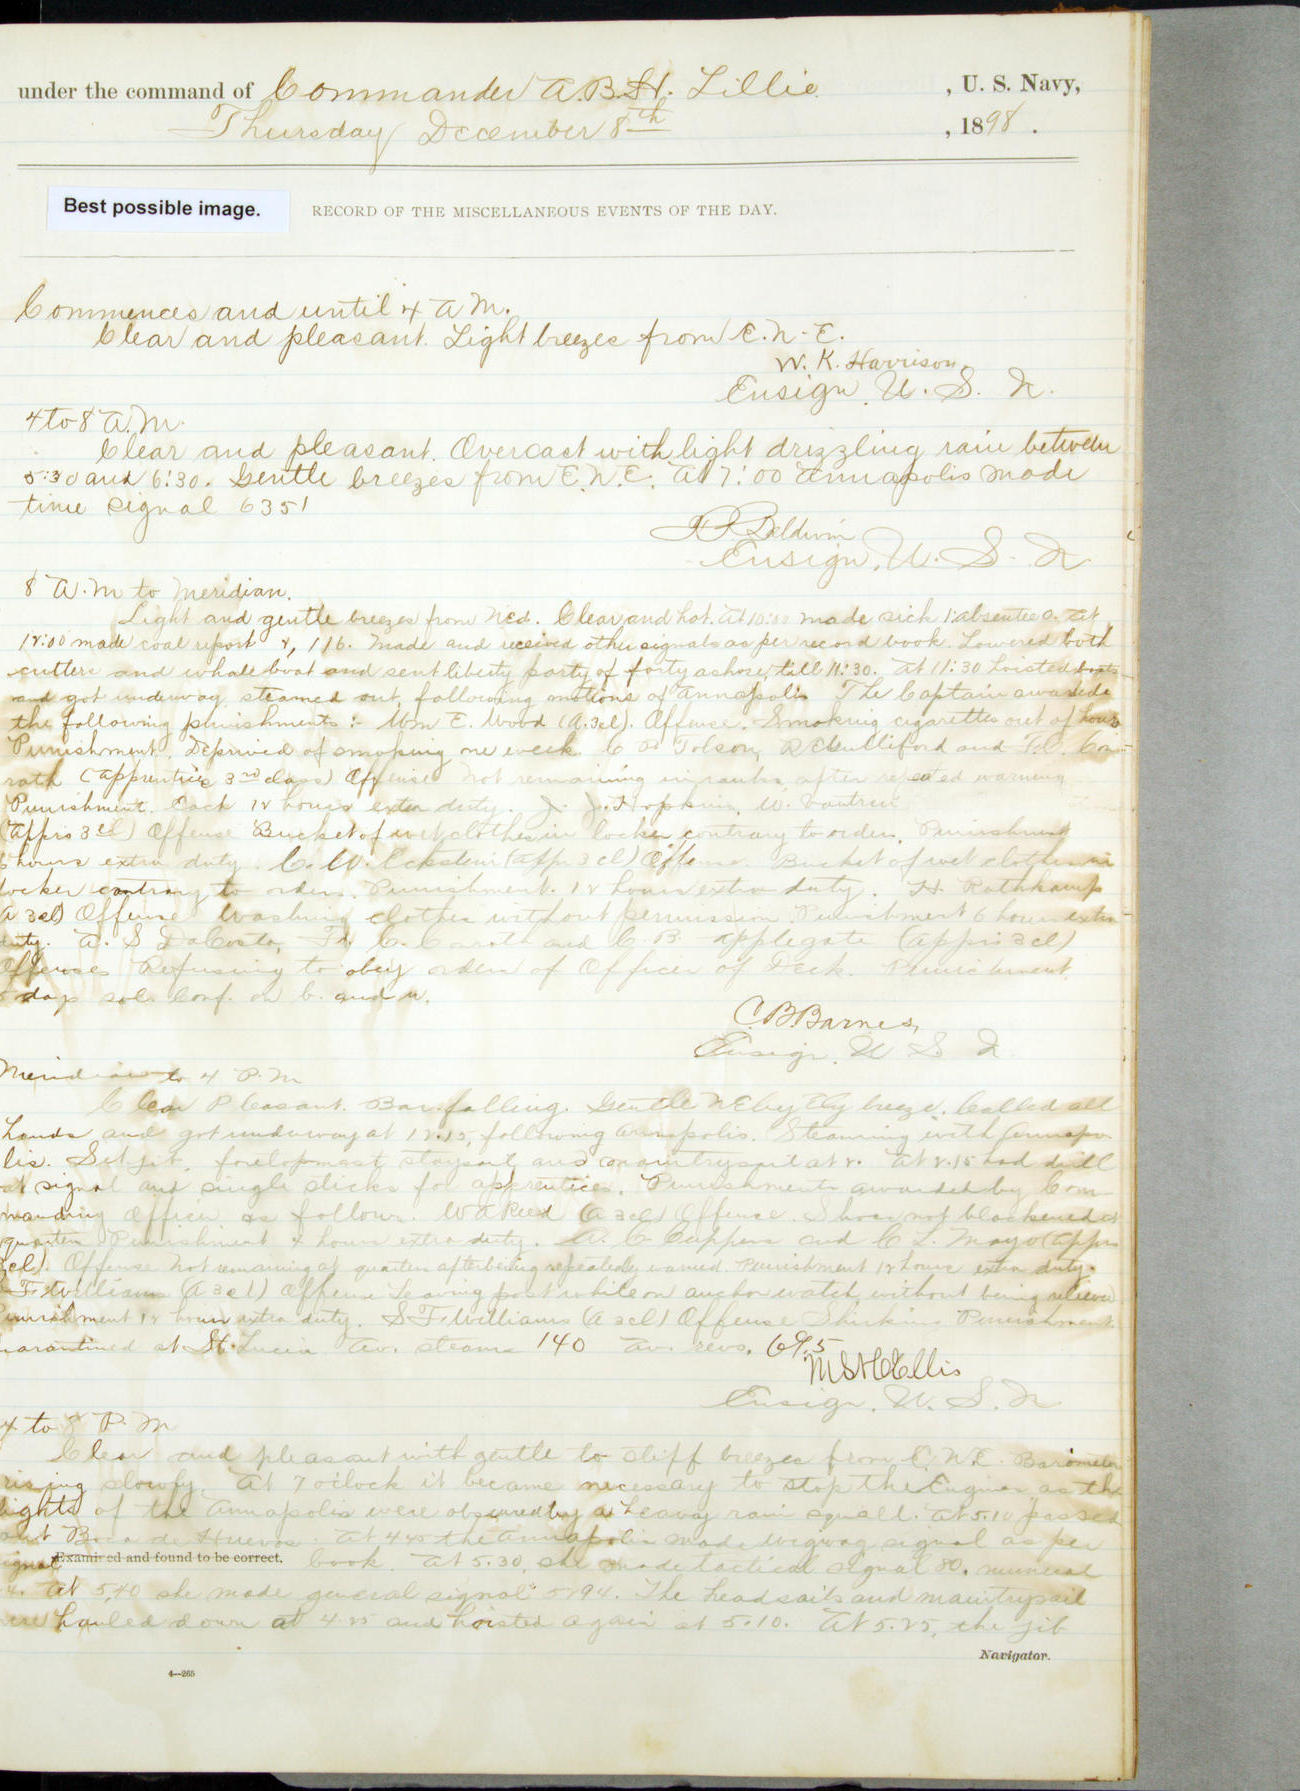 under the command of Commander A.B.H. Lillie , U. S. Navy,
Thursday December 8th , 1898 .
Best possible image. RECORD OF THE MISCELLANEOUS EVENTS OF THE DAY.
Commences and until 4 A M.
Clear and pleasant. Light breezes from E.N.E.
W. K. Harrison,
Ensign, U. S. N.
4 to 8 A.M.
Clear and pleasant. Overcast with light drizzling rain between
5:30 and 6:30. Gentle breezes from E.N.E. At 7:00 Annapolis made
time signal 6351
Baldwin
Ensign, U. S. N
8 A.M to Meridian.
Light and gentle breezes from NEd. Clear and hot. At 10:00 made sick 1: absentee 0. At
12:00 made coal report 2, 116. Made and received other signals as per record book. Lowered both
cutters and whale boat and sent liberty party of forty ashore, till 11:30. At 11:30 hoisted boats
and got underway, steamed out, following motions of Annapolis The Captain awarded
the following punishments:- Wm E. Wood (A.3cl). Offense. Smoking cigarettes out of hours
Punishment. Deprived of smoking one week. C P Tolson, R Culliford and F.C. Con-
rath (apprentice 3rd class) Offense Not remaining in ranks after repeated warning
Punishment. Each 12 hours extra duty. J. J. Hopkins, W.
(Apprs 3cl) Offense Bucket of wet clothes in locker contrary to orders. Punishment
hours extra duty. C. W. Eckstein (App 3cl) Offense. Bucket of wet clothes in
locker contrary to orders. Punishment. 12 hours extra duty. H. Rathkamp
(A 3cl) Offense Washing clothes without permission. Punishment 6 hours extra
duty. A. S DaCosta, F. C. Conrath and C. B. Applegate (Apprs 3cl)
Offenses Refusing to obey orders of Officer of Deck. Punishment.
5 days sol. conf. on b. and w.
C.B.Barnes,
Ensign, U S N.
Meridian to 4 P.M
Clear Pleasant. Bar. falling. Gentle NE by E'ly breeze. Called all
hands and got underway at 12.15, following Annapolis. Steaming with Annapo-
lis. Set jib, foretopmast staysail and main trysail at 2. At 2.15 had drill
at signal and single sticks for apprentices. Punishments awarded by Com-
manding Officer as follows. W A Reed (A 3cl) Offense. Shoes not blackened at
quarters Punishment 4 hours extra duty. A. C. Cappers and C L. Mayo (Apprs
3cl). Offense Not remaining at quarters after being repeatedly warned. Punishment 12 hours extra duty.
S F. Williams (A 3cl) Offense Leaving post while on anchor watch without being relieved
Punishment 12 hours extra duty. S F. Williams (A 3cl) Offense Shirking Punishment
quarantined at St. Lucia Av. steam 140 Av. revs. 69.5
M St C Ellis
Ensign, U. S. N
4 to 8 P. M
Clear and pleasant with gentle to stiff breezes from E.N.E. Barometer
rising slowly. At 7 o'clock it became necessary to stop the Engines as the
lights of the Annapolis were obscured by a heavy rain squall. At 5.10 passed
out Boca de Huevos. At 4.40 the Annapolis made wigwag signal as per
signal book. At 5.30, she made tactical signal 80, numeral
Examined and found to be correct.
4. At 5,40 she made general signal 5794. The headsails and main trysail
were hauled down at 4.25 and hoisted again at 5.10. At 5.25, the jib
Navigator.
4—265